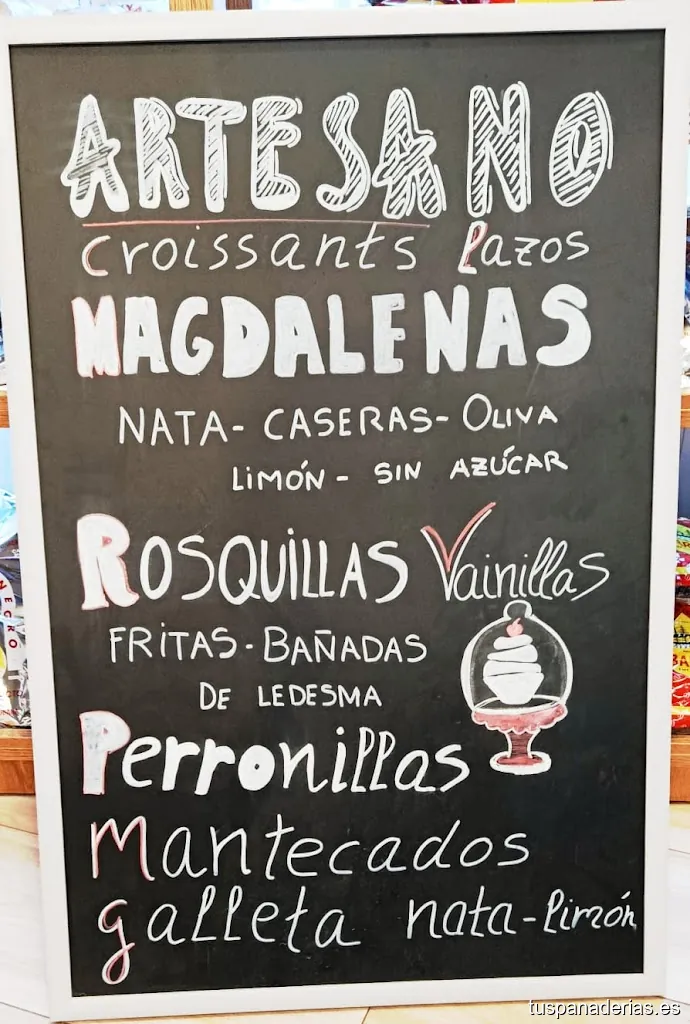 ARTESANO
Croissants Lazos
MAGDALENAS
NATA- CASERAS- OLIVA
LIMÓN- SIN AZÚCAR
ROSQUILLAS Vainillas
FRITAS-BAÑADAS
DE LEDESMA
Perronillas
Mantecados
galleta nata-limón
NEGRO
tuspanaderias.es